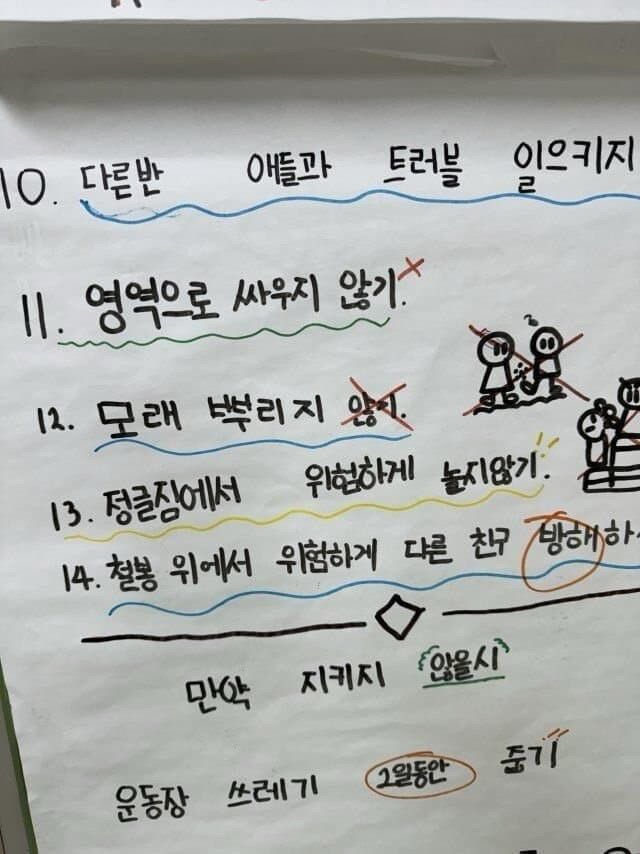 10. 다른반 애들과 트러블 일으키지
11. 영역으로 싸우지 않기.
12. 모래 뿌리지 않기.
13. 정글짐에서 위험하게 놀지않기.
14. 철봉 위에서 위험하게 다른 친구 방해하
만약 지키지 않을시
운동장 쓰레기 2일동안 줍기